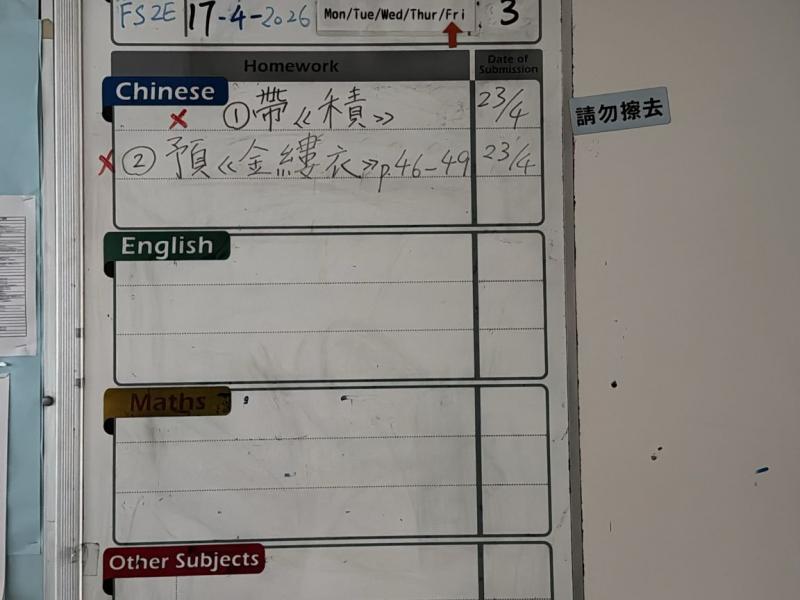 FS2E 17-4-2026 Mon/Tue/Wed/Thur/Fri 3
Homework Date of Submission
Chinese
① 帶《積》 23/4
請勿擦去
② 預《金縷衣》p.46-49 23/4
English
Maths
Other Subjects